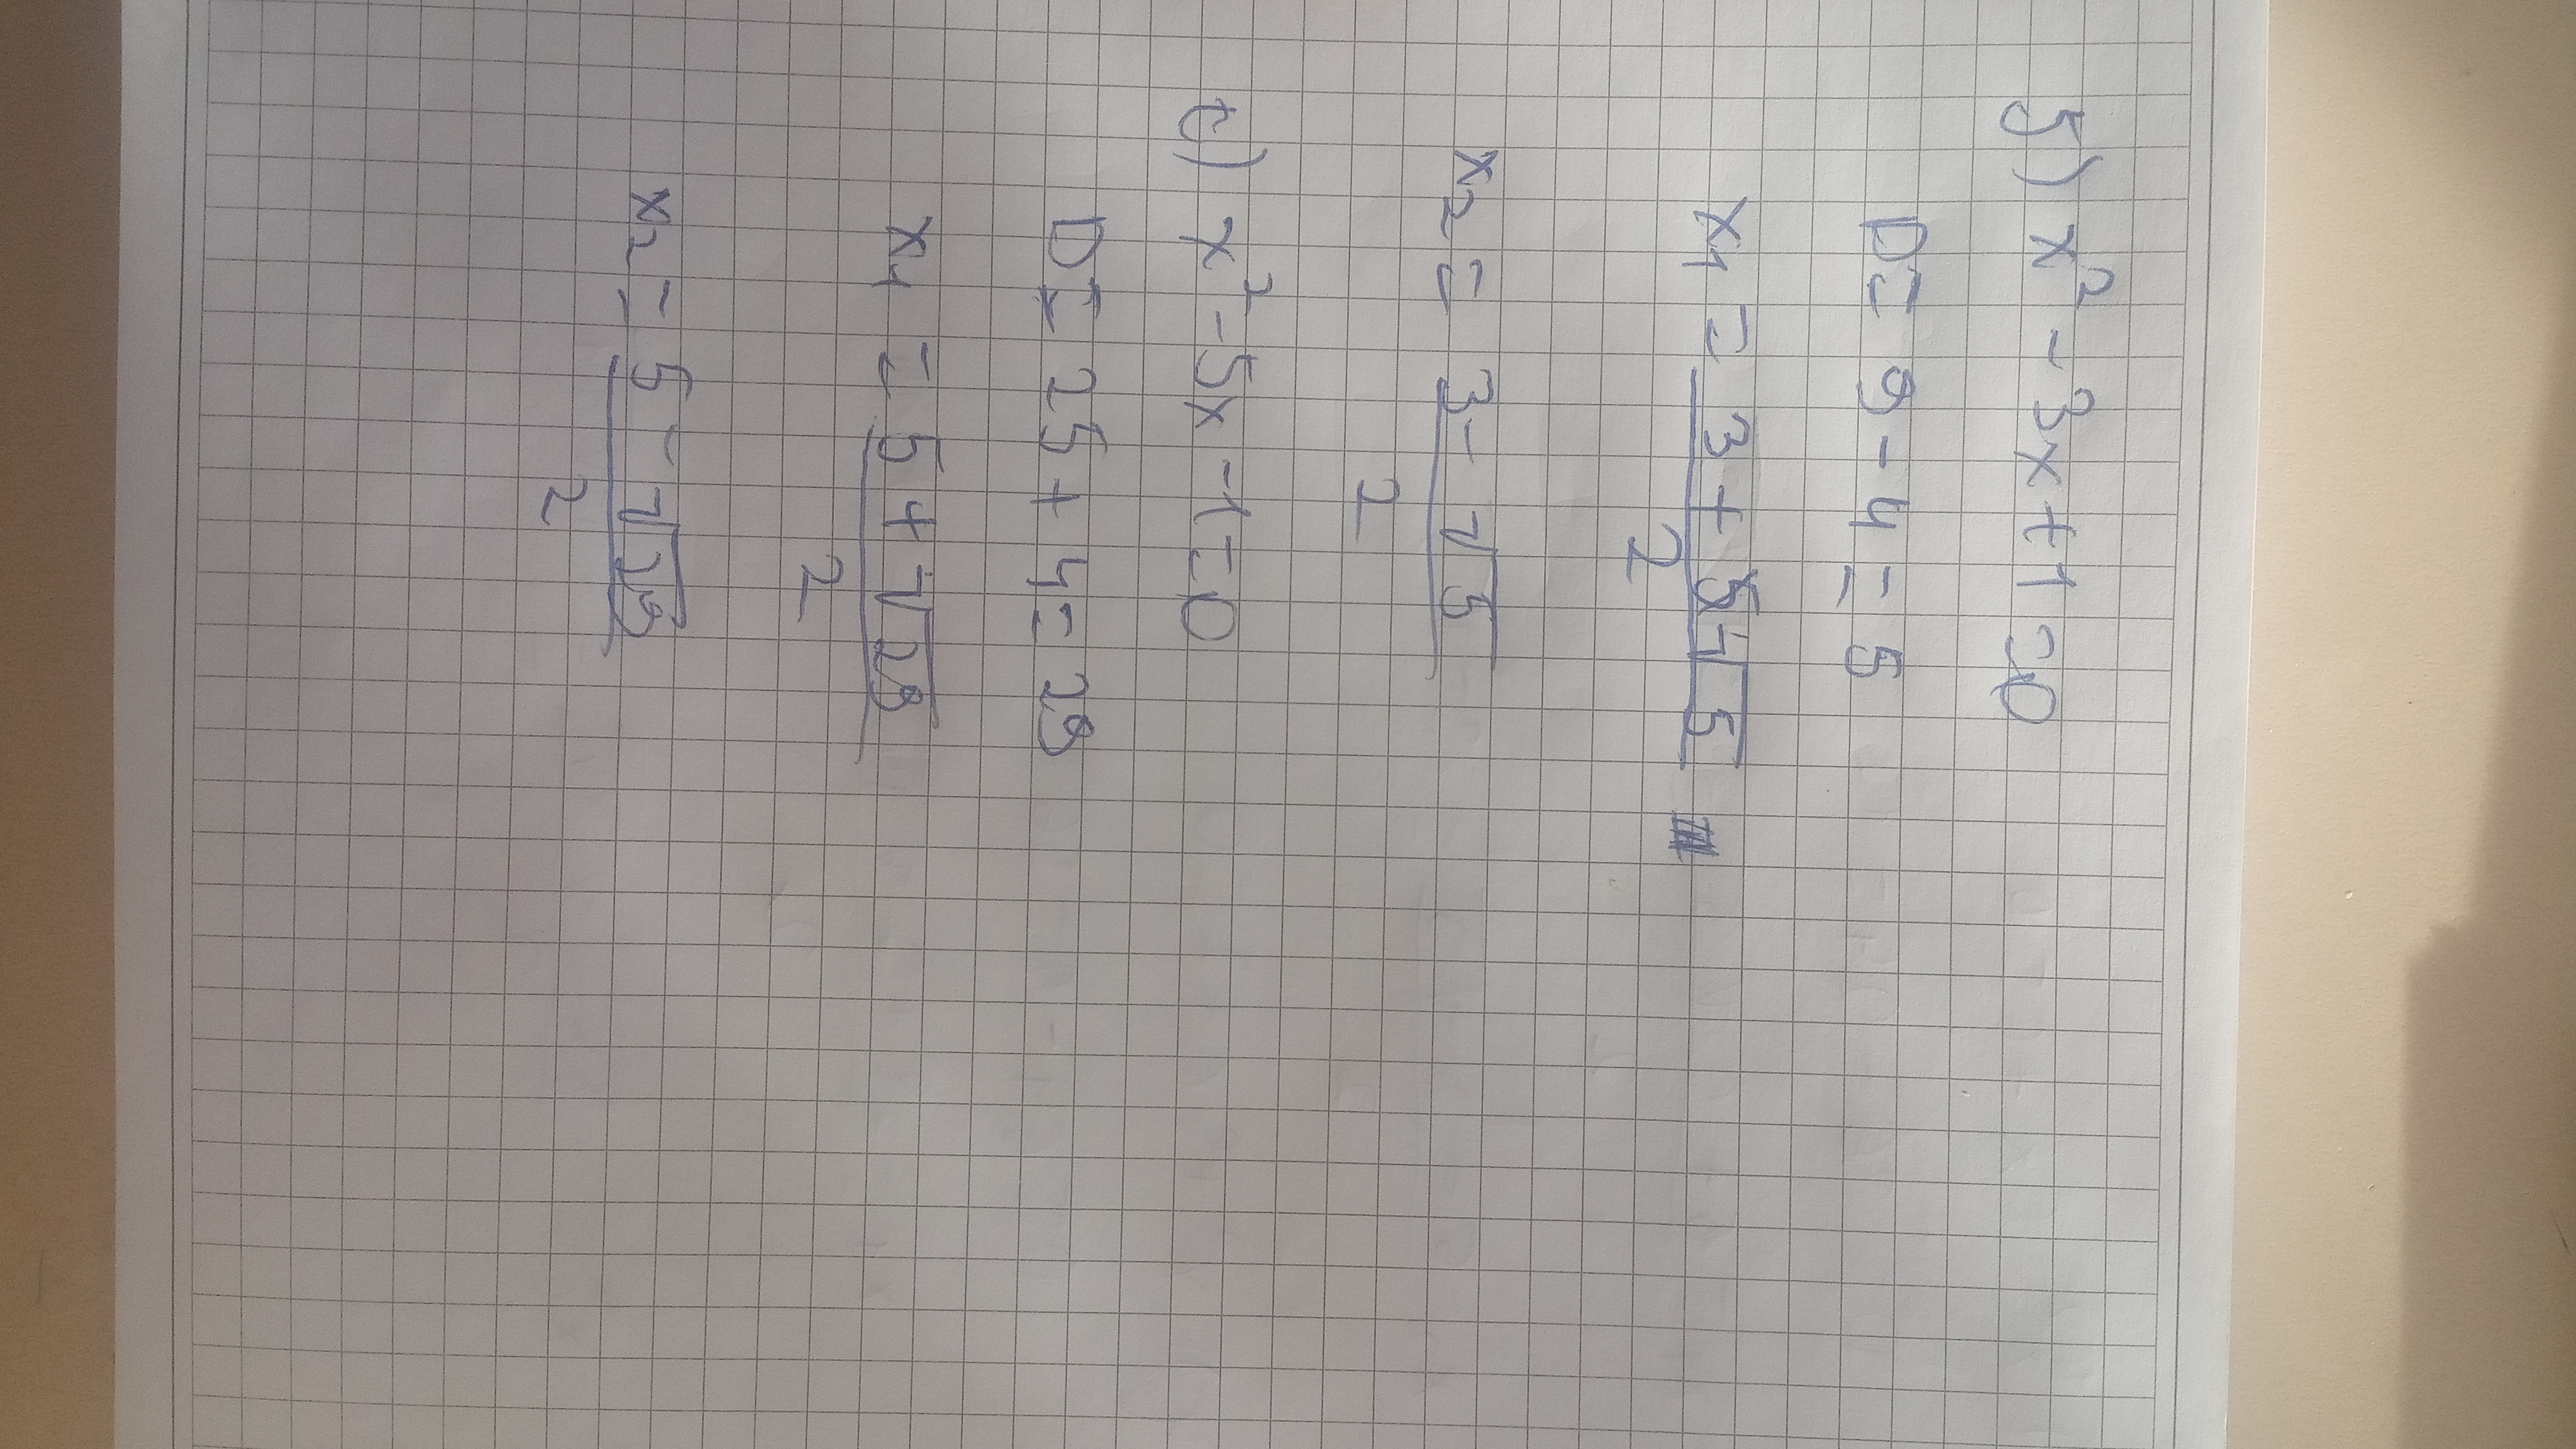 5) x² - 3x + 1 = 0
D = 9 - 4 = 5
x₁ = (3 + √5) / 2
x₂ = (3 - √5) / 2
6) x² - 5x - 1 = 0
D = 25 + 4 = 29
x₁ = (5 + √29) / 2
x₂ = (5 - √29) / 2